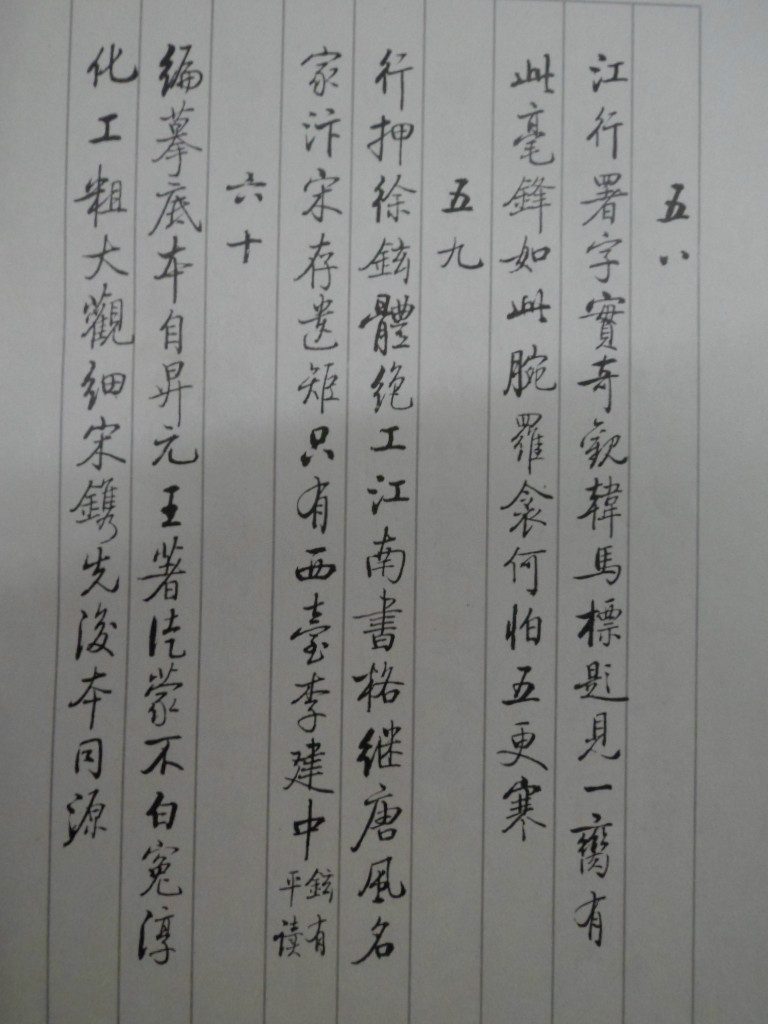 五八
江行署字實奇觀韓馬標題見一臠有
此毫鋒如此腕羅衾何怕五更寒
五九
行押徐鉉體絶工江南書格继唐風名
家汴宋存遗矩只有西臺李建中鉉有
平读
六十
编摹底本自昇元王著徒蒙不白冤淳
化工粗大觀细宋鐫先後本同源